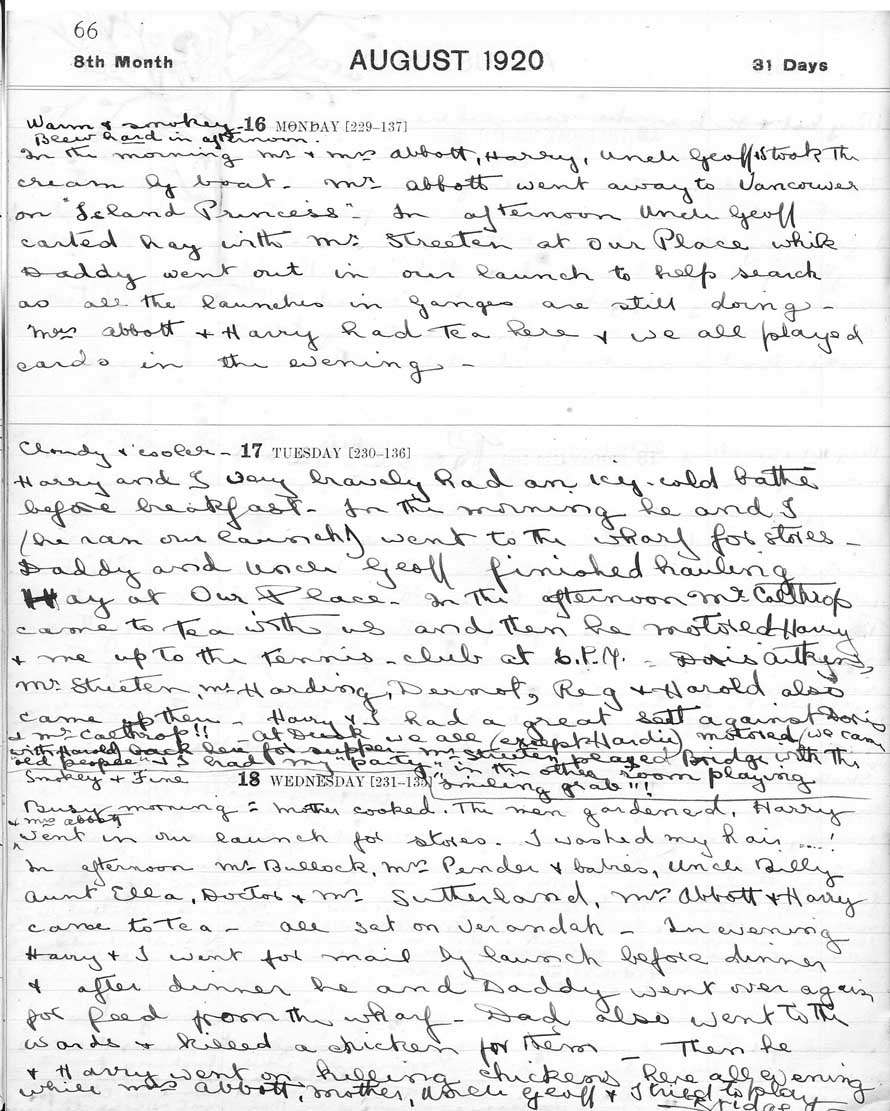 66
8th Month AUGUST 1920 31 Days
Warm & smokey - 16 MONDAY [229-137]
Blew hard in afternoon.
In the morning Mr & Mrs Abbott, Harry, Uncle Geoff took the
cream by boat - Mr Abbott went away to Vancouver
on "Island Princess" - In afternoon Uncle Geoff
carted hay with Mr Streeten at Our Place while
Daddy went out in our launch to help search
as all the launches in Ganges are still doing -
Mrs Abbott & Harry had Tea here & we all played
cards in the evening -
Cloudy & cooler - 17 TUESDAY [230-136]
Harry and I very bravely had an icy-cold bathe
before breakfast - In the morning he and I
(he ran our launch) went to the wharf for stores -
Daddy and Uncle Geoff finished hauling
Hay at Our Place - In the afternoon Mr Calthrop
came to Tea with us and then he motored Harry
& me up to the Tennis-club at - Doris Aitkens,
Mr Streeten, Mr Harding, Dermot, Reg & Harold also
came up then - Harry & I had a great sett against Doris
& Mr Calthrop!! - at Dusk we all (except Hardie) motored (we came
with Harold) back here for supper - Mr Streeten played Bridge with the
"old people" & I had my "party" in the other room playing
"smiling grab"!!
Smokey & Fine 18 WEDNESDAY [231-135]
Busy morning = Mother cooked. The men gardened, Harry
& Mrs Abbott
went in our launch for stores. I washed my hair ....!
In afternoon Mr Bullock, Mrs Pender & babies, Uncle Billy
Aunt Ella, Doctor & Mrs Sutherland, Mrs Abbott & Harry
came to Tea - all sat on verandah - In evening
Harry & I went for mail by launch before dinner
& after dinner he and Daddy went over again
for feed from the wharf - Dad also went to the
Wards & killed a chicken for them - Then he
& Harry went on killing chickens here all evening
while Mrs Abbott, Mother, Uncle Geoff & I tried to play
- Bridge